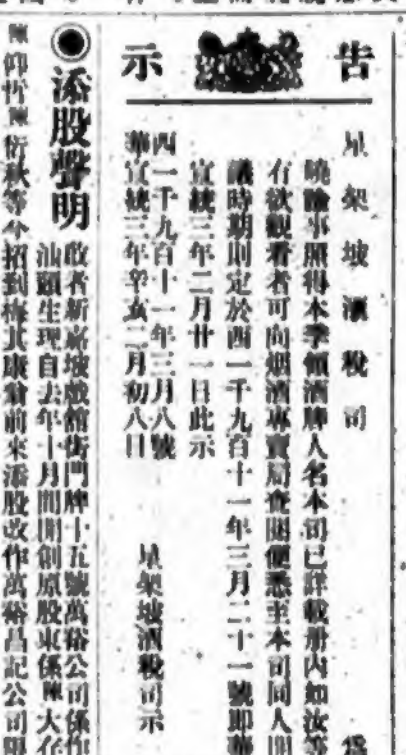 告示
星架坡酒稅司　爲
曉諭事照得本季領酒牌人名本司已詳載册內如汝等
有欲觀看者可向烟酒專賣局查閱便悉至本司同人開
議時期則定於西一千九百十一年三月二十一號即華
宣統三年二月廿一日此示
西一千九百十一年三月八號
華宣統三年辛亥二月初八日
星架坡酒稅司示
添股聲明
敬者新嘉坡戲館街門牌十五號萬裕公司係作
汕頭生理自去年十月間開創原股東係陳大
陳仰忻陳衍秋等今招到梅其康翁前來添股改作萬裕昌記公司